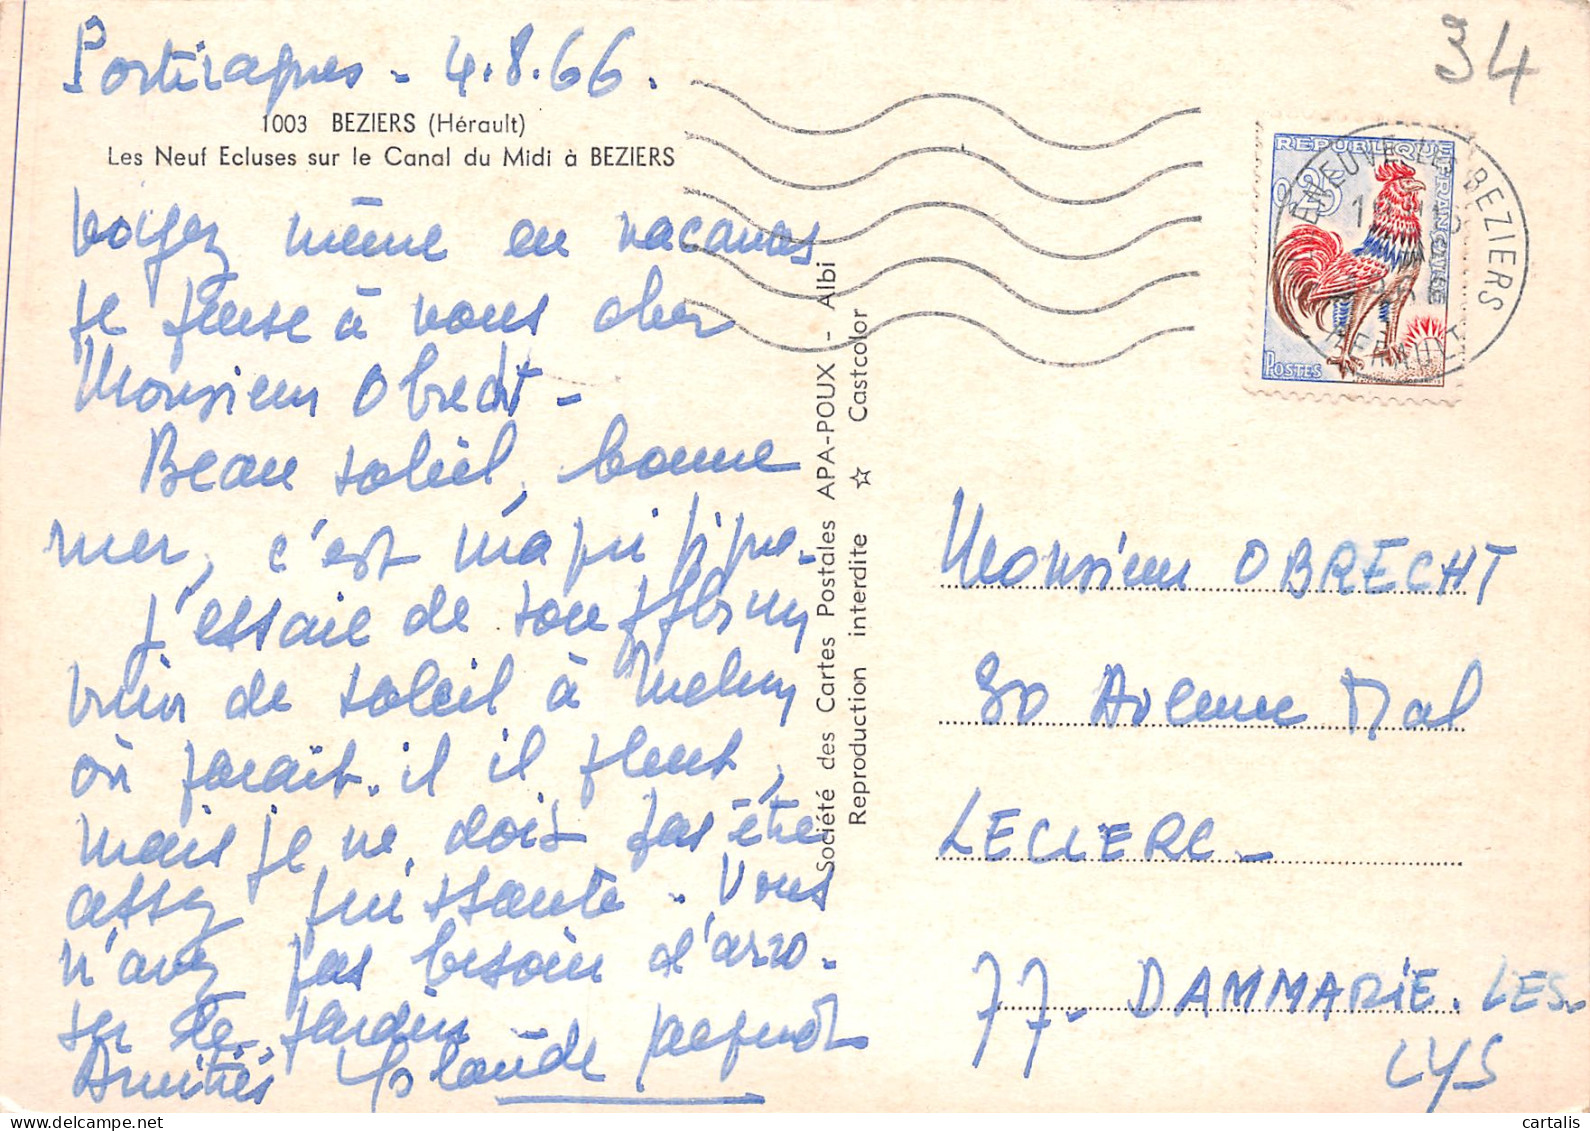 Portiragnes - 4.8.66.
1003 BEZIERS (Hérault)
Les Neuf Ecluses sur le Canal du Midi à BEZIERS
Voyez même en vacances
je pense à vous cher
Monsieur Obrecht -
Beau soleil, bonne
mer, c'est magnifique.
J'essaie de souffler un
brin de soleil à Melun
où paraît-il il pleut,
mais je ne dois pas être
assez puissante. Vous
n'avez pas besoin d'arro-
ser le jardin
Amitiés Claude Jacquot
Société des Cartes Postales APA-POUX - Albi
Reproduction interdite ☆ Castcolor
34
REPUBLIQUE FRANÇAISE
0,25
POSTES
LES BEZIERS
HERAULT
Monsieur OBRECHT
30 Avenue Mal
LECLERC -
77 - DAMMARIE. LES-
LYS
delcampe.net
cartalis